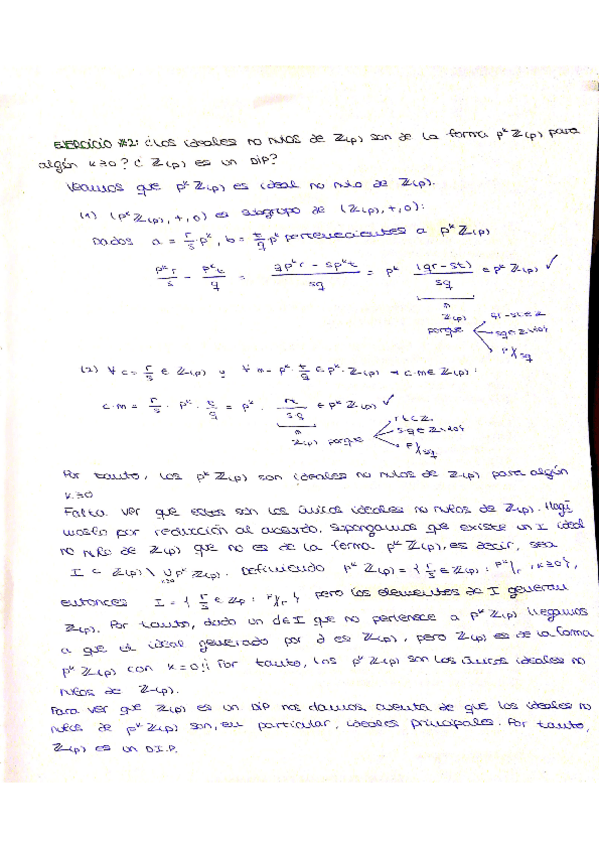 EJERCICIO #2: ¿Los ideales no nulos de Z(p) son de la forma p^k Z(p) para
algún k≥0? ¿Z(p) es un DIP?
Veamos que p^k Z(p) es ideal no nulo de Z(p).
(1) (p^k Z(p), +, 0) es subgrupo de (Z(p), +, 0):
Dados a = r/s p^k, b = t/q p^k pertenecientes a p^k Z(p)
p^k r/s - p^k t/q = (q p^k r - s p^k t)/sq = p^k (qr-st)/sq ∈ p^k Z(p) ✓
Z(p) porque
qr-st ∈ Z
sq ∈ Z\{0}
p∤sq
(2) ∀ c = r/s ∈ Z(p) y ∀ m = p^k t/q ∈ p^k Z(p) → c·m ∈ Z(p):
c·m = r/s · p^k · t/q = p^k · rt/sq ∈ p^k Z(p) ✓
Z(p) porque
rt ∈ Z
sq ∈ Z\{0}
p∤sq
Por tanto, los p^k Z(p) son ideales no nulos de Z(p) para algún
k≥0
Falta ver que estos son los únicos ideales no nulos de Z(p). Hagá
moslo por reducción al absurdo. Supongamos que existe un I ideal
no nulo de Z(p) que no es de la forma p^k Z(p), es decir, sea
I ⊂ Z(p) \ ∪ p^k Z(p). Definiendo p^k Z(p) = { r/s ∈ Z(p) : p^k/r, k≥0},
k≥0
entonces I = { r/s ∈ Zp : p^k∤r } pero los elementos de I generan
Z(p). Por tanto, dado un d∈I que no pertenece a p^k Z(p) llegamos
a que el ideal generado por d es Z(p), pero Z(p) es de la forma
p^k Z(p) con k=0 ¡! Por tanto, los p^k Z(p) son los únicos ideales no
nulos de Z(p).
Para ver que Z(p) es un DIP nos damos cuenta de que los ideales no
nulos de p^k Z(p) son, en particular, ideales principales. Por tanto,
Z(p) es un D.I.P.